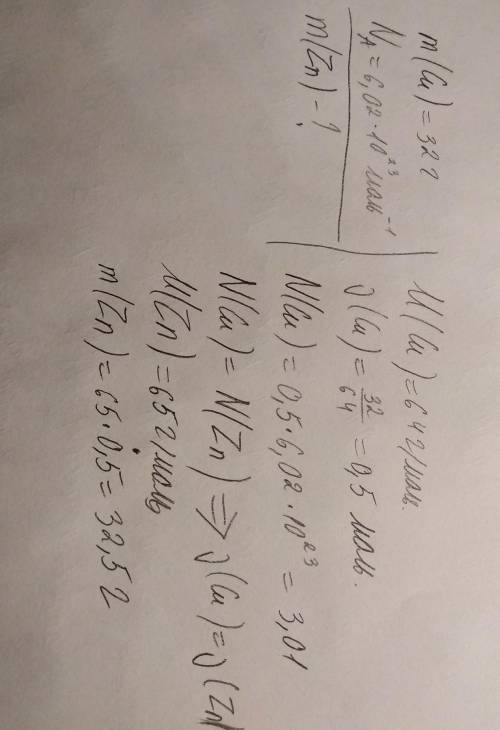 m(Cu) = 32 г
N_A = 6,02 · 10²³ моль⁻¹
m(Zn) - ?
M(Cu) = 64 г/моль.
ν(Cu) = 32/64 = 0,5 моль.
N(Cu) = 0,5 · 6,02 · 10²³ = 3,01
N(Cu) = N(Zn) ⇒ ν(Cu) = ν(Zn)
M(Zn) = 65 г/моль
m(Zn) = 65 · 0,5 = 32,5 г